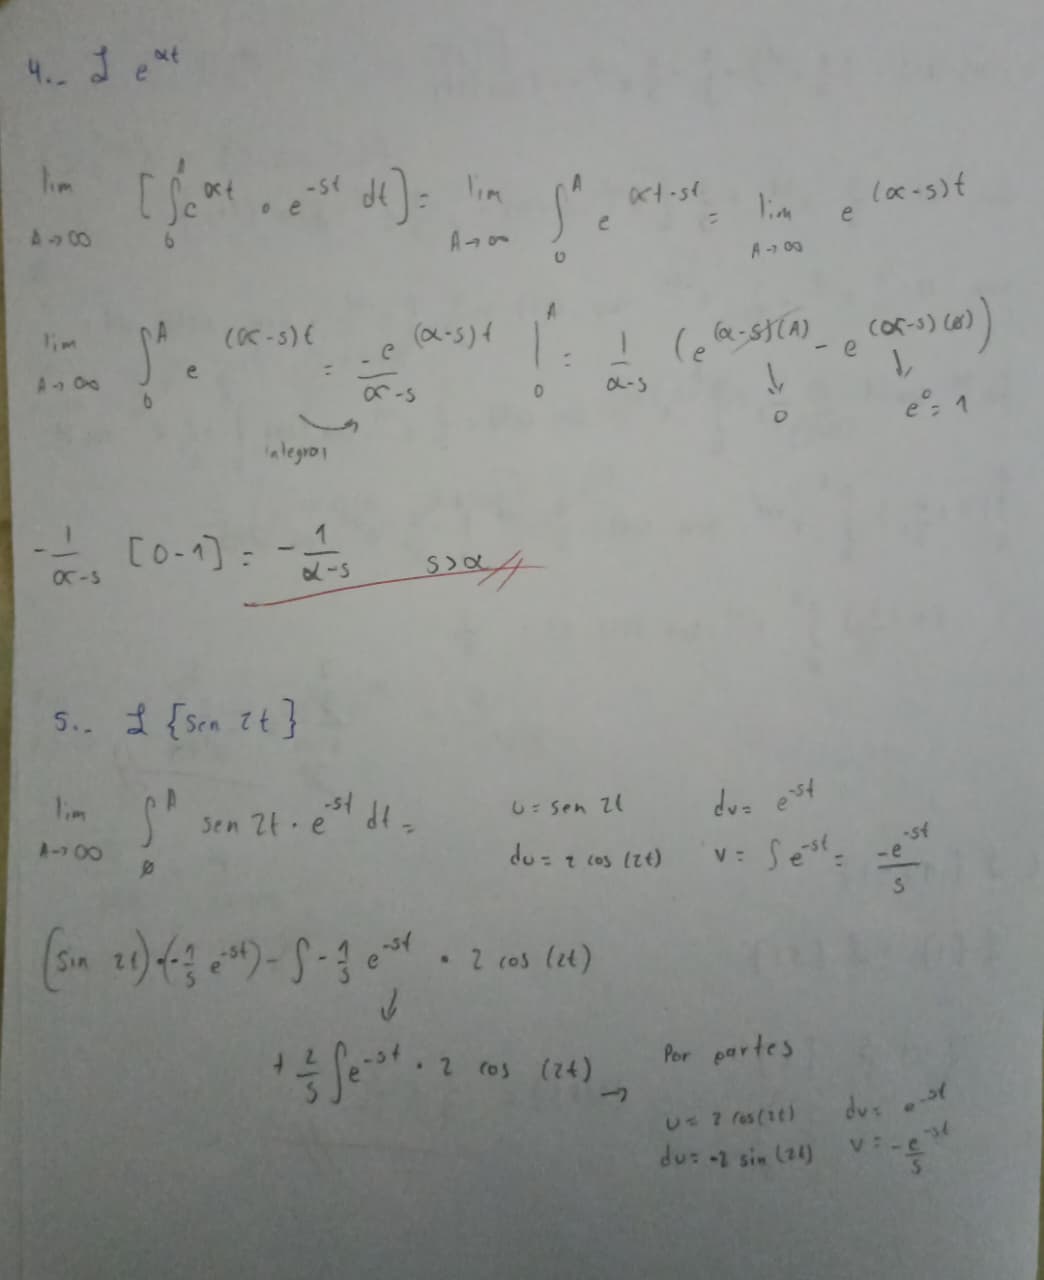 4.- ℒ e^αt
lim A→∞ [∫₀^A e^αt · e^-st dt] = lim A→∞ ∫₀^A e^αt-st = lim A→∞ e^(α-s)t
lim A→∞ ∫₀^A e^(α-s)t = -e^(α-s)t / α-s |₀^A = 1/α-s (e^(α-s)(A) - e^(α-s)(0))
↓ 0 ↓ e⁰=1
integral
-1/α-s [0-1] = -1/α-s s>α
5.- ℒ {sen 2t}
lim A→∞ ∫₀^A sen 2t · e^-st dt = u = sen 2t dv = e^-st
du = 2 cos (2t) v = ∫e^-st = -e^-st / s
(sin 2t)·(-1/s e^-st) - ∫ -1/s e^-st · 2 cos (2t)
↓
+ 2/s ∫e^-st · 2 cos (2t) → Por partes
u = 2 cos(2t) dv = e^-st
du = -2 sin (2t) v = -e^-st / s